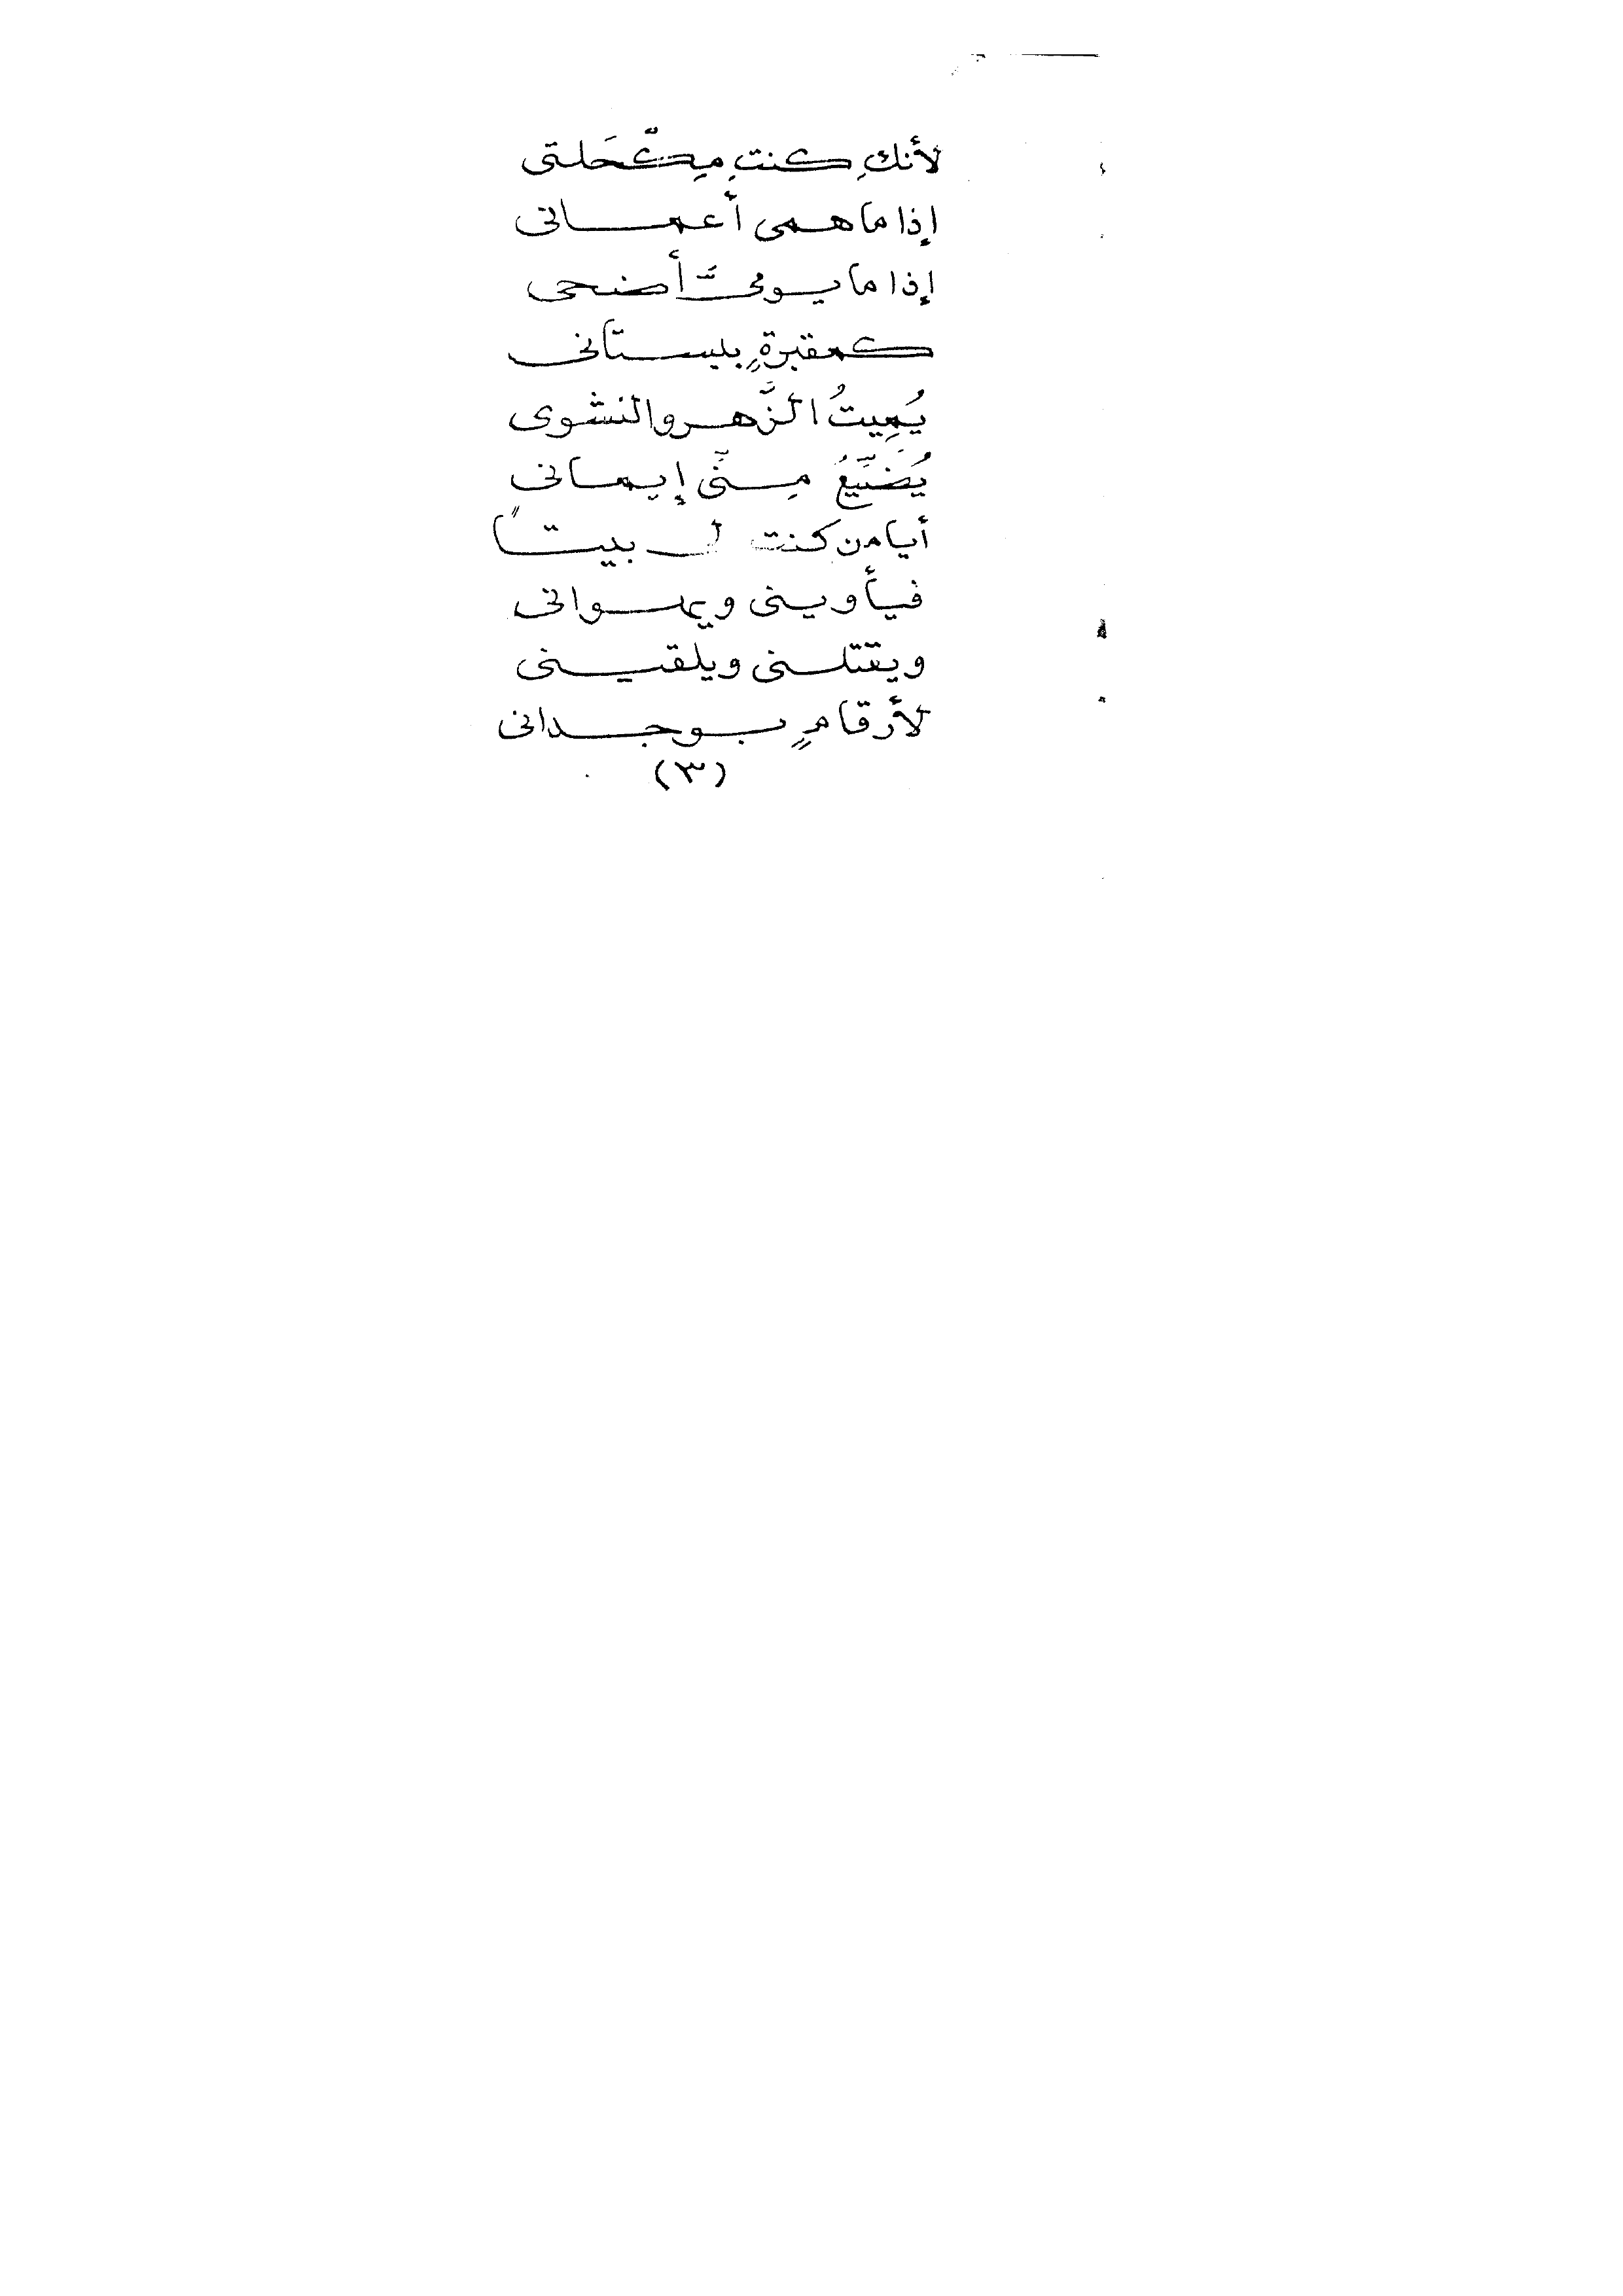 لأنكِ كنتِ مِكْحَلتى
إذا ما همى أعمانى
إذا ما يومىَ أضحى
كمقبرةٍ ببستانى
يُمِيتُ الزَّهر والنشوى
يُضَيِّعُ مِنِّى إيمانى
أيا من كنت لى بيتاً
فيأوينى ويهوانى
ويقتلنى ويلقينى
لأرقامٍ بوجدانى
(٣)